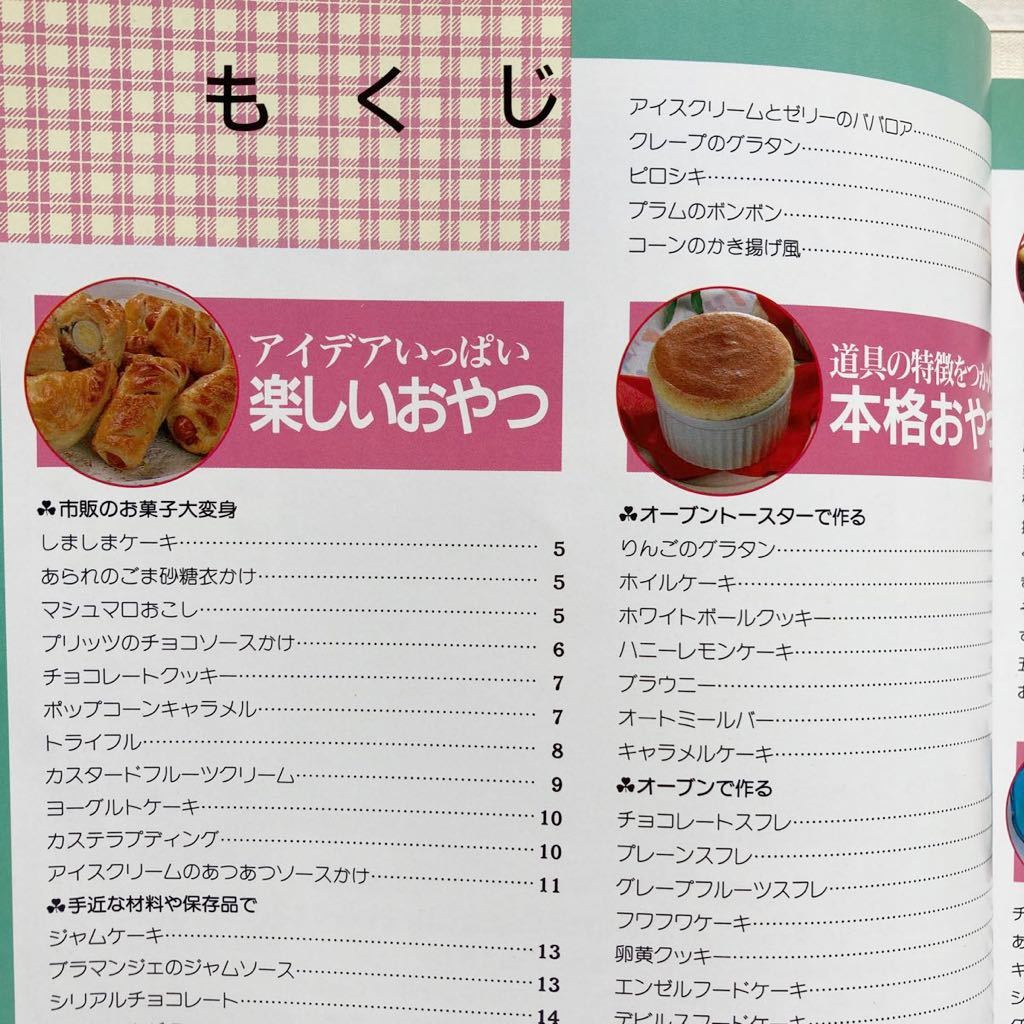 もくじ
アイデアいっぱい
楽しいおやつ
☘市販のお菓子大変身
しましまケーキ 5
あられのごま砂糖衣かけ 5
マシュマロおこし 5
プリッツのチョコソースかけ 6
チョコレートクッキー 7
ポップコーンキャラメル 7
トライフル 8
カスタードフルーツクリーム 9
ヨーグルトケーキ 10
カステラプディング 10
アイスクリームのあつあつソースかけ 11
☘手近な材料や保存品で
ジャムケーキ 13
ブラマンジェのジャムソース 13
シリアルチョコレート 14
アイスクリームとゼリーのババロア
クレープのグラタン
ピロシキ
プラムのボンボン
コーンのかき揚げ風
道具の特徴をつか
本格おやつ
☘オーブントースターで作る
りんごのグラタン
ホイルケーキ
ホワイトボールクッキー
ハニーレモンケーキ
ブラウニー
オートミールバー
キャラメルケーキ
☘オーブンで作る
チョコレートスフレ
プレーンスフレ
グレープフルーツスフレ
フワフワケーキ
卵黄クッキー
エンゼルフードケーキ
デビルスフードケーキ